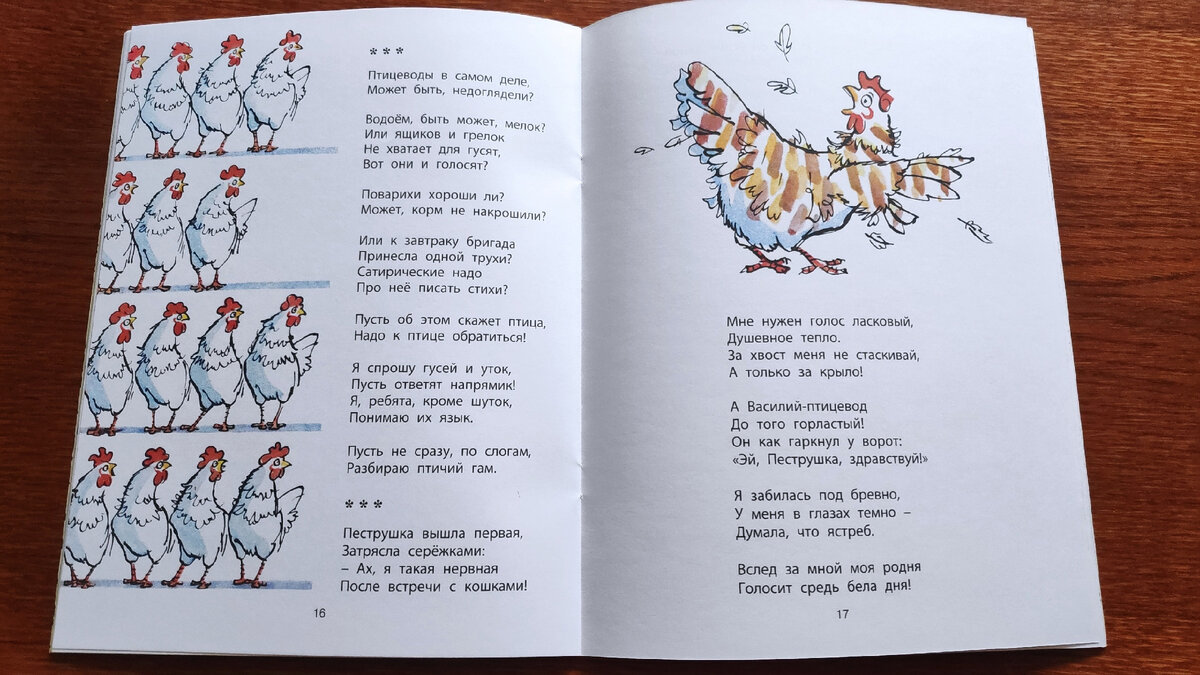 * * *
Птицеводы в самом деле,
Может быть, недоглядели?
Водоём, быть может, мелок?
Или ящиков и грелок
Не хватает для гусят,
Вот они и голосят?
Поварихи хороши ли?
Может, корм не накрошили?
Или к завтраку бригада
Принесла одной трухи?
Сатирические надо
Про неё писать стихи?
Пусть об этом скажет птица,
Надо к птице обратиться!
Я спрошу гусей и уток,
Пусть ответят напрямик!
Я, ребята, кроме шуток,
Понимаю их язык.
Пусть не сразу, по слогам,
Разбираю птичий гам.
* * *
Пеструшка вышла первая,
Затрясла серёжками:
– Ах, я такая нервная
После встречи с кошками!
16
Мне нужен голос ласковый,
Душевное тепло.
За хвост меня не стаскивай,
А только за крыло!
А Василий-птицевод
До того горластый!
Он как гаркнул у ворот:
«Эй, Пеструшка, здравствуй!»
Я забилась под бревно,
У меня в глазах темно –
Думала, что ястреб.
Вслед за мной моя родня
Голосит средь бела дня!
17